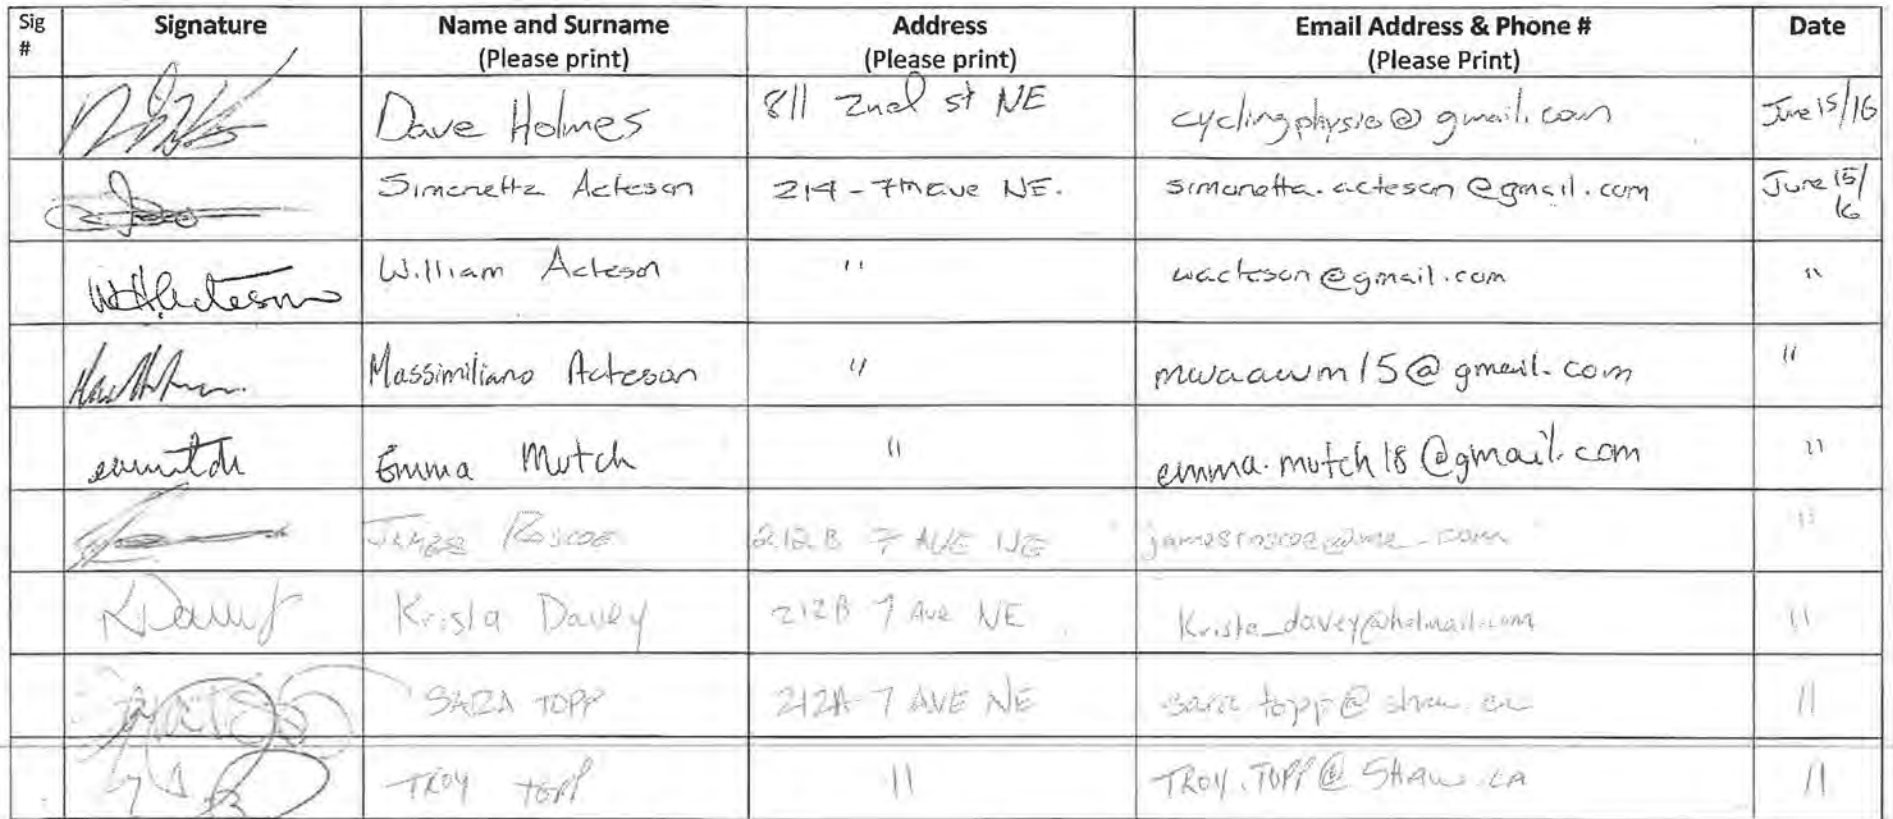 Sig # Signature Name and Surname (Please print) Address (Please print) Email Address & Phone # (Please Print) Date
Dave Holmes 811 2nd st NE cyclingphysio@gmail.com June 15/16
Simonetta Acteson 214 - 7th Ave NE. simonetta.acteson@gmail.com June 15/16
William Acteson " wacteson@gmail.com "
Massimiliano Acteson " mwaawm15@gmail.com "
Emma Mutch " emma.mutch18@gmail.com "
James Roscoe 212B 7 AVE NE jamesroscoe@me.com "
Krista Davey 212B 7 Ave NE Krista_davey@hotmail.com "
SARA TOPP 212A-7 AVE NE sara.topp@shaw.ca "
TROY TOPP " TROY.TOPP@SHAW.CA "